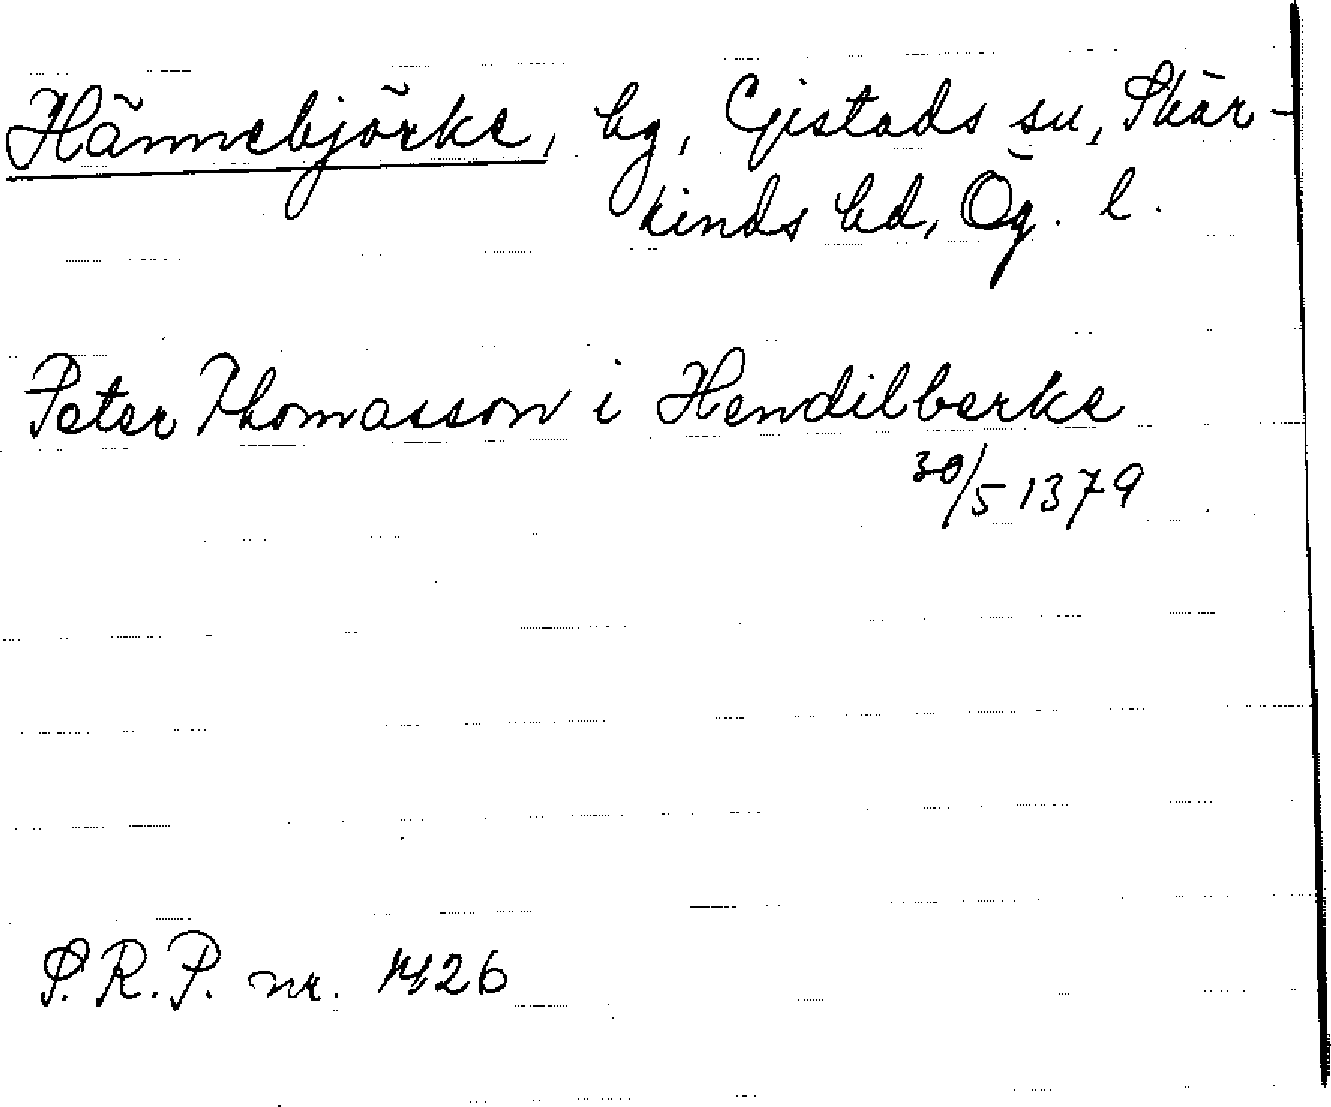 Hännebjörke, by, Gistads sn, Skär-
kinds hd, Ög. l.
Peter Thomasson i Hendilberke
30/5 1379
S.R.P. nr. 1426